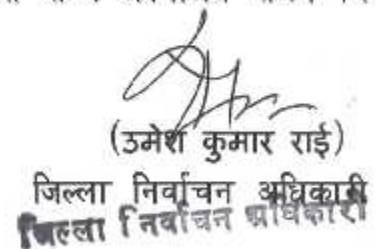 (उमेश कुमार राई)
जिल्ला निर्वाचन अधिकारी
जिल्ला निर्वाचन अधिकारी